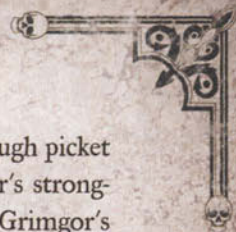 ugh picket
r's strong-
Grimgor's